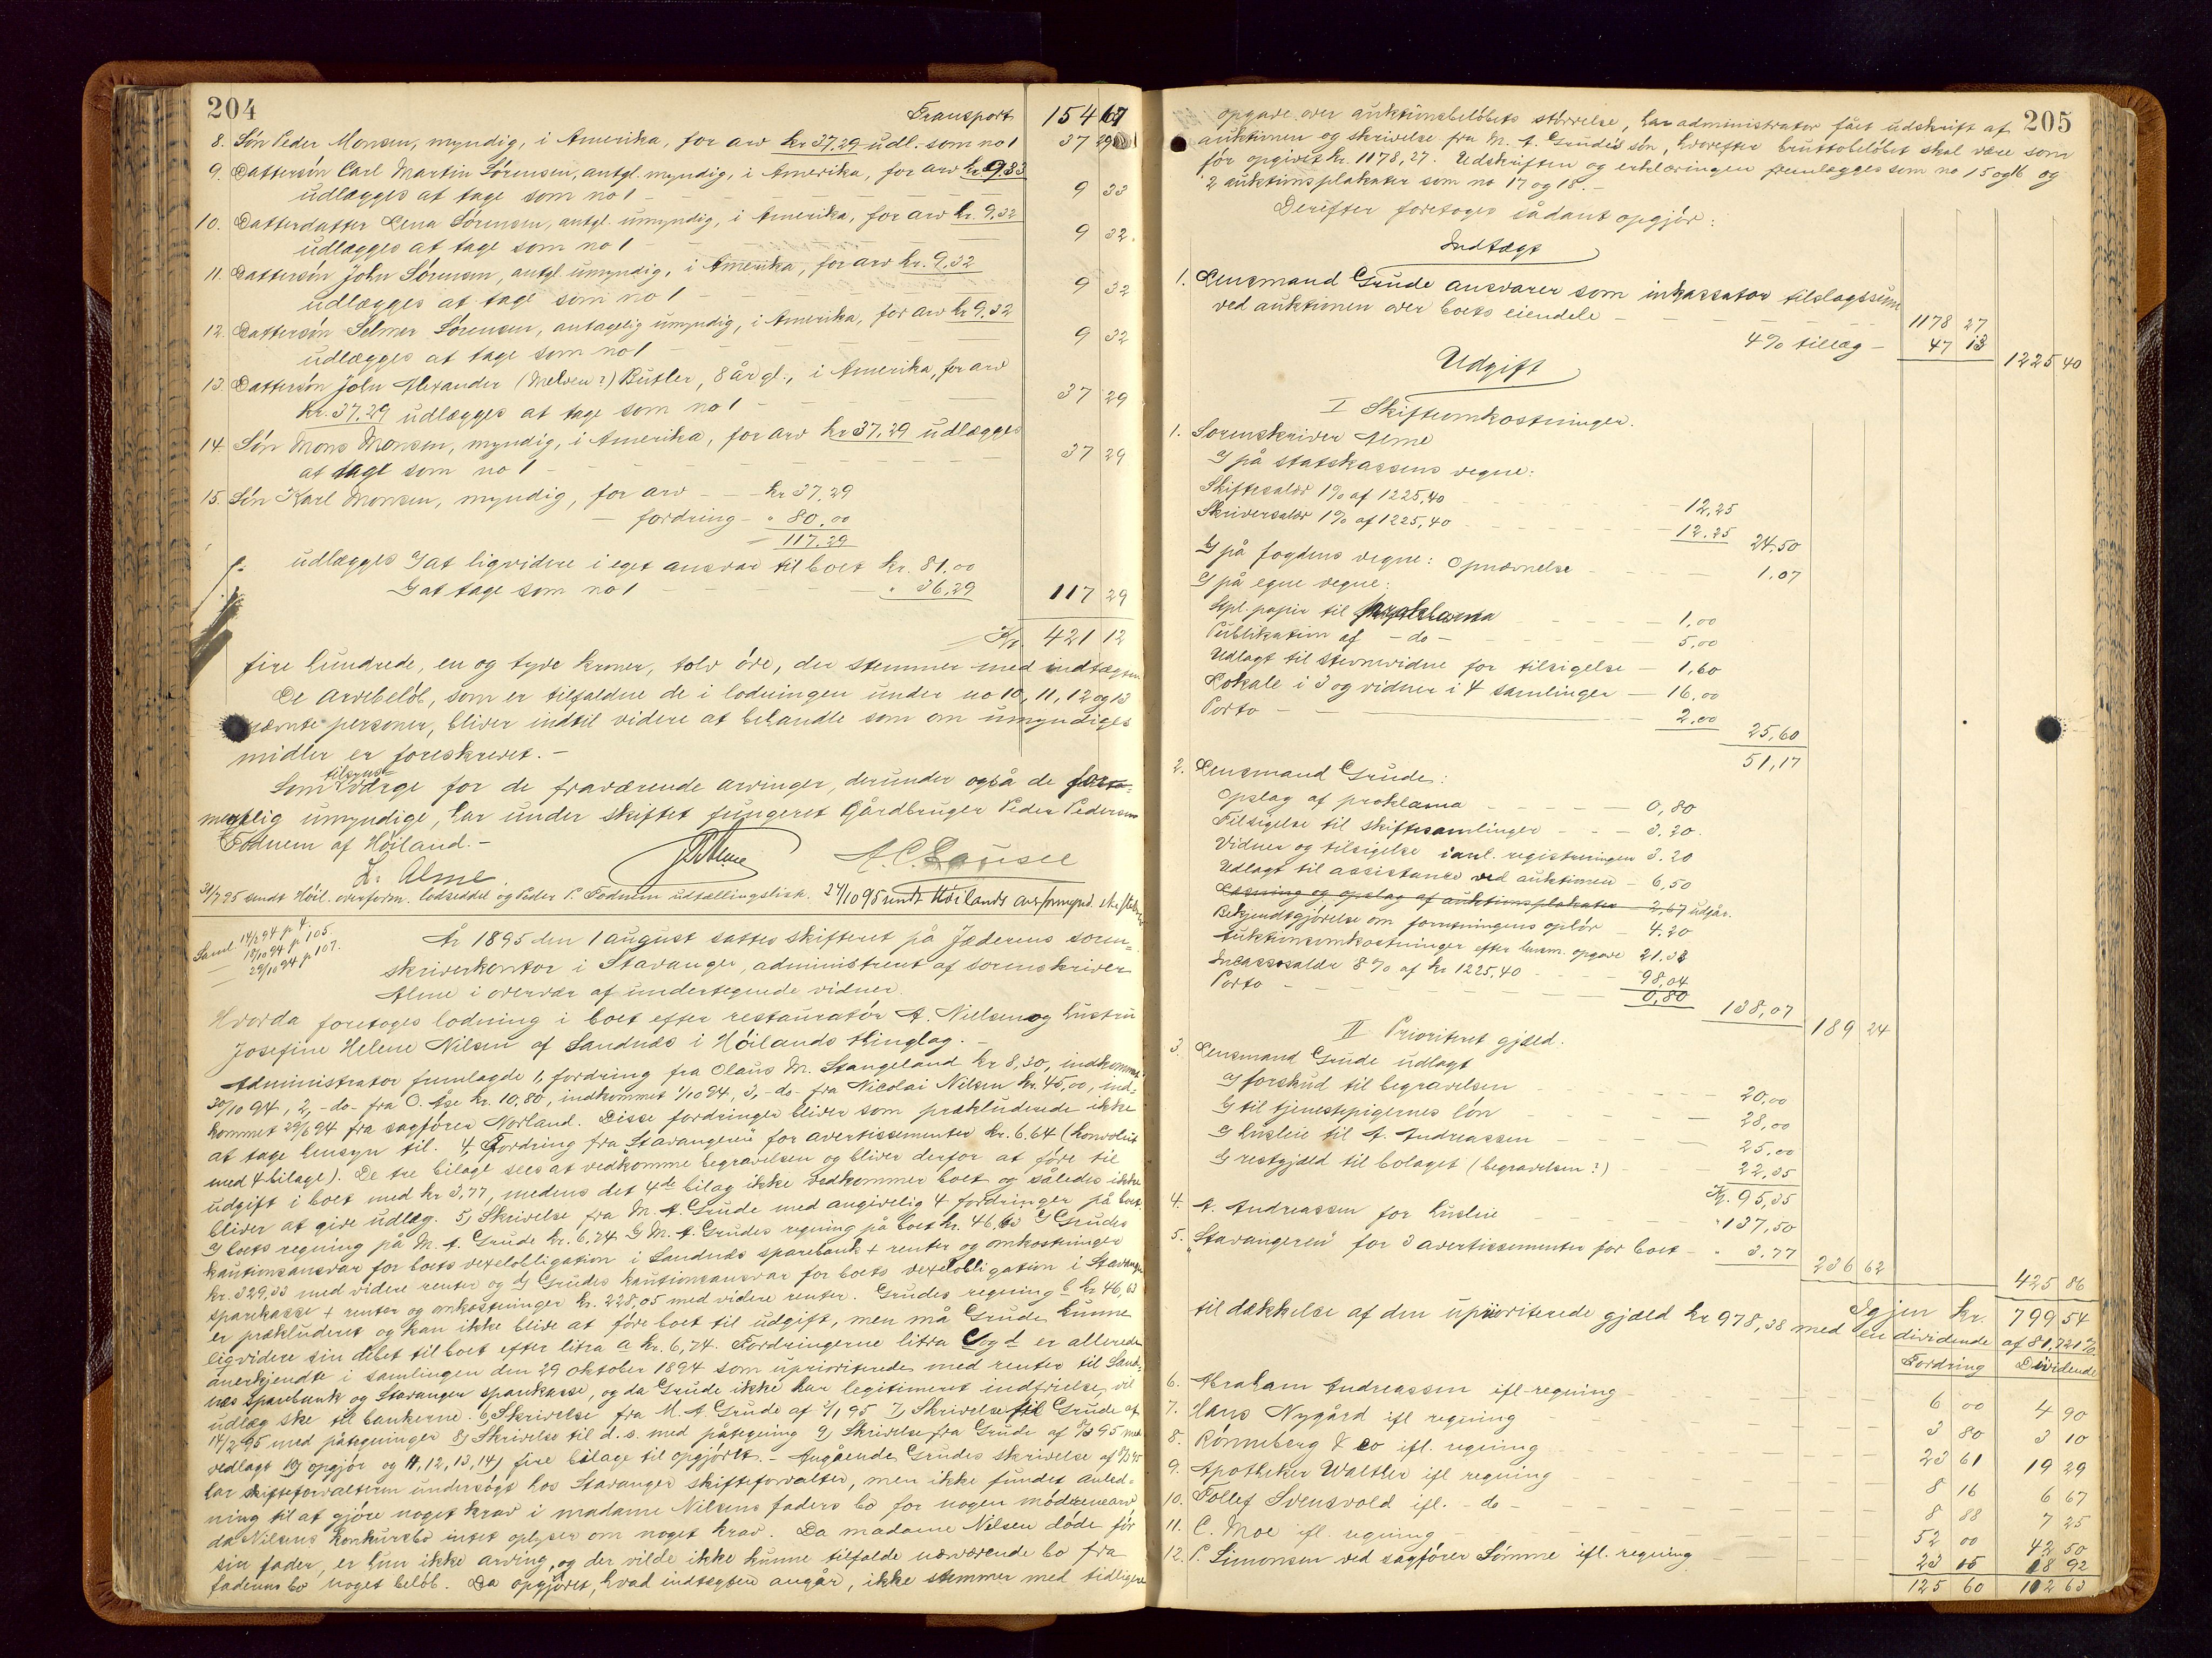 204
Transport 154 67
8. Søn Peder Monsen, myndig, i Amerika, for arv kr 37,29 udl. som no 1 37 29
9. Dattersøn Carl Martin Sørensen, antgl. myndig, i Amerika, for arv kr 9,33
udlægges at tage som no 1 — 9 33
10. Datterdatter Lena Sørensen, antgl. umyndig, i Amerika, for arv kr. 9,32
udlægges at tage som no 1 — 9 32
11. Dattersøn John Sørensen, antgl. umyndig, i Amerika, for arv kr. 9,32
udlægges at tage som no 1 — 9 32
12. Dattersøn Selmer Sørensen, antagelig umyndig, i Amerika, for arv kr 9,32
udlægges at tage som no 1 — 9 32
13. Dattersøn John Alexander (Melven?) Butler, 8 år gl., i Amerika, for arv
kr. 37,29 udlægges at tage som no 1 — 37 29
14. Søn Mons Monsen, myndig, i Amerika, for arv kr 37,29 udlægges
at tage som no 1 — 37 29
15. Søn Karl Monsen, myndig, for arv — kr 37,29
— fordring — " 80,00
117,29
udlægges a) at liqvidere i eget ansvar til boet kr. 81,00
b) at tage som no 1 — " 36,29 117 29
Kr. 421 12
fire hundrede, en og tyve kroner, tolv øre, der stemmer med indtægten
De arvebeløb, som er tilfaldne de i lodningen under no 10, 11, 12 og 13
nævnte personer, bliver indtil videre at behandle som om umyndiges
midler er foreskrevet. —
Som tilsyns værge for de fraværende arvinger, derunder også de
umyndige, har under skiftet fungeret Gårdbruger Peder Pedersen
Fodnem af Høiland. —
L. Alme. A. C. Clausen
31/7 95 sendt Høil. overform. lodseddel og Peder P. Fodnem udtællingslisk. 24/10 95 sendt Høilands
Saml. 14/7 94 p 4,
18/10 94 p 105.
29/10 94 p 107.
År 1895 den 1 august sattes skifteret på Jæderens soren-
skriverkontor i Stavanger, administreret af sorenskriver
Alme i overvær af undertegnede vidner.
Hvorda foretoges lodning i boet efter restauratør A. Nielsen og hustru
Josefine Helene Nilsen af Sandnæs i Høilands thinglag. —
Administrator fremlagde 1, fordring fra Olaus M. Stangeland kr 8,30, indkommet
30/10 94, 2, -do- fra O. Åse kr. 10,80, indkommet 1/10 94, 3, -do- fra Nicolai Nilsen kr. 45,00, ind-
kommet 29/6 94 fra sagfører Norland. Disse fordringer bliver som prækluderede ikke
at tage hensyn til. 4, Fordring fra "Stavangeren" for avertissementer kr. 6.64 (konvolut
med 4 bilage). De tre bilage sees at vedkomme begravelsen og bliver derfor at føre til
udgift i boet med kr 3,77, medens det 4de bilag ikke vedkommer boet og således ikke
bliver at give udlæg. 5, Skrivelse fra M. A. Grude med angivelig 4 fordringer på boet.
a) boets regning på M. A. Grude kr. 6,74. b) M. A. Grudes regning på boet kr. 46,63 c) Grudes
kautionsansvar for boets vexelobligation i Sandnæs sparebank + renter og omkostninger
kr. 329,33 med videre renter og d) Grudes kautionsansvar for boets vexelobligation i Stavanger
sparekasse + renter og omkostninger kr. 228,05 med videre renter. Grudes regning b kr 46,63
er prækluderet og kan ikke blive at føre boet til udgift, men må Grude kunne
liqvidere sin debet til boet efter litra a kr. 6,74. Fordringerne litra c og d er allerede
anerkjendte i samlingen den 29 oktober 1894 som uprioriterede med renter til Sand-
næs sparebank og Stavanger sparekasse, og da Grude ikke har legitimeret indfrielse, vil
udlæg ske til bankerne. 6, Skrivelse fra M. A. Grude af 2/1 95 7, Skrivelse til Grude af
14/2 95 med påtegninger 8, Skrivelse til d. s. med påtegning 9, Skrivelse fra Grude af 8/3 95 med
vedlagt 10) opgjør og 11, 12, 13, 14) fire bilage til opgjøret. — Angående Grudes skrivelse af 8/3 95
har skifteforvalteren undersøgt hos Stavanger skifteforvalter, men ikke fundet anled-
ning til at gjøre noget krav i madame Nilsens faders bo for nogen mødrenearv
da Nilsens konkursbo intet oplyser om noget krav. Da madame Nilsen døde før
sin fader, er hun ikke arving, og der vilde ikke kunne tilfalde nærværende bo fra
faderens bo noget beløb. Da opgjøret, hvad indtægten angår, ikke stemmer med tidligere
205
opgave over auktionsbeløbets størrelse, har administrator fået udskrift af
auktionen og skrivelse fra M. A. Grudes søn, hvorefter bruttobeløbet skal være som
før opgivet kr. 1178,27. Udskriften og erklæringen fremlægges som no 15 og 16 og
2 auktionsplakater som no 17 og 18. —
Derefter foretoges sådant opgjør:
Indtægt
1. Lensmand Grude ansvarer som inkassator tilslagssum
ved auktionen over boets eiendele — 1178 27
4% tillæg — 47 13 1225 40
Udgift
I Skifteomkostninger.
1. Sorenskriver Alme
a) på statskassens vegne:
Skiftesalær 1% af 1225,40 — 12,25
Skriversalær 1% af 1225,40 — 12.25 24.50
b) på fogdens vegne: Opnævnelse — 1,07
c) på egne vegne:
Stpl. papir til proklama — 1,00
Publikation af -do- — 5,00
Udlagt til stevnevidne for tilsigelse — 1,60
Lokale i 3 og vidner i 4 samlinger — 16,00
Porto — 2,00 25,60
51,17
2. Lensmand Grude:
Opslag af proklama — 0,80
Tilsigelse til skiftesamlinger — 3.20.
Vidner og tilsigelse i anl. registreringen 3.20
Udlagt til assistance ved auktionen — 6,50
Læsning og opslag af auktionsplakater — 2,67 udgår.
Bekjendtgjørelse om forretningens ophør — 4.20
Auktionsomkostninger efter lensm. opgave 21.33
Incassosalær 8% af kr 1225,40 — 98,04
Porto — 0,80 138,07 189 24
II Prioriteret gjæld.
3. Lensmand Grude udlagt
a) forskud til begravelsen — 20,00
b) til tjenestepigernes løn — 28,00
c) husleie til A. Andreassen — 25,00
d) restgjæld til bolaget (begravelsen?) — 22,35
Kr. 95,35
4. A. Andreassen for husleie — " 137,50
5. "Stavangeren" for 3 avertissementer for boet — " 3.77 236 62 425 86
Igjen kr. 799 54
til dækkelse af den uprioriterede gjæld kr 978,38 med en dividende af 81,721%
Fordring Dividende
6. Abraham Andreassen ifl regning — 6 00 4 90
7. Hans Nygård ifl regning — 3 80 3 10
8. Rønneberg & co ifl. regning — 23 61 19 29
9. Apotheker Walther ifl regning — 8 16 6 67
10. Tollef Svensvold ifl. -do- — 8 88 7 25
11. C. Moe ifl. regning — 52 00 42 50
12. P. Simonsen ved sagfører Sømme ifl. regning — 23 15 18 92
125 60 102 63